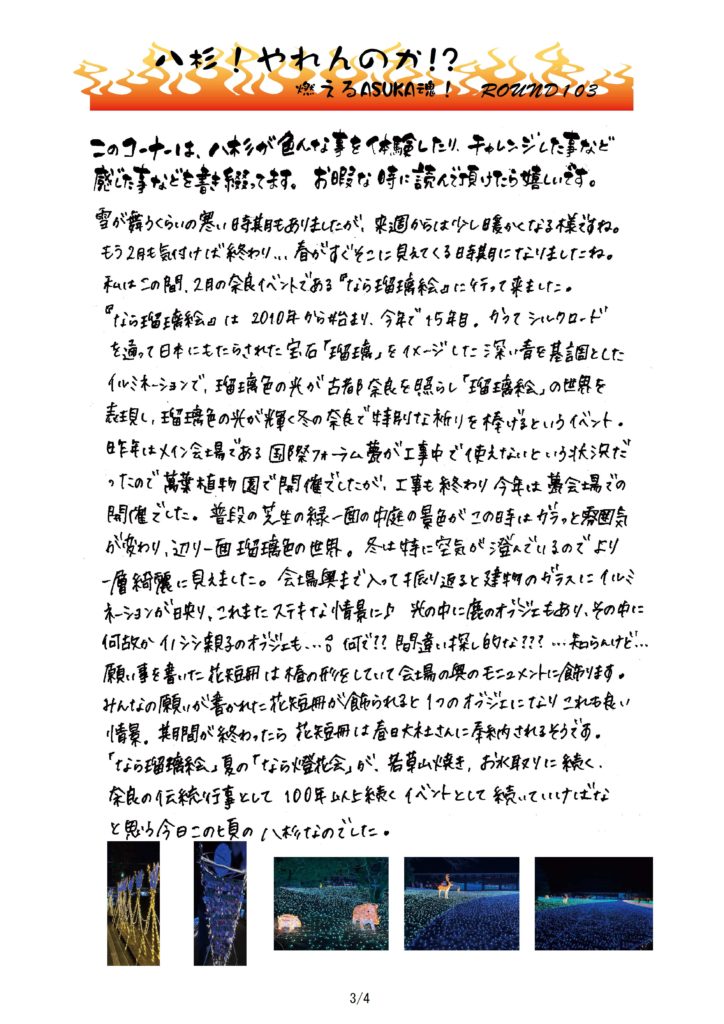 八杉！やれんのか!?
燃えるASUKA魂！ ROUND103
このコーナーは、八杉が色んな事を体験したり、チャレンジした事など
感じた事などを書き綴ってます。 お暇な時に読んで頂けたら嬉しいです。
雪が舞うくらいの寒い時期もありましたが、来週からは少し暖かくなる様ですね。
もう2月も気付けば終わり… 春がすぐそこに見えてくる時期になりましたね。
私はこの間、2月の奈良イベントである『なら瑠璃絵』に行って来ました。
『なら瑠璃絵』は 2010年から始まり、今年で15年目。かつてシルクロード
を通って日本にもたらされた宝石「瑠璃」をイメージした深い青を基調とした
イルミネーションで、瑠璃色の光が古都奈良を照らし「瑠璃絵」の世界を
表現し、瑠璃色の光が輝く冬の奈良で特別な祈りを捧げるというイベント。
昨年はメイン会場である国際フォーラム甍が工事中で使えないという状況だ
ったので萬葉植物園で開催でしたが、工事も終わり今年は甍会場での
開催でした。普段の芝生の緑一面の中庭の景色がこの時はガラっと雰囲気
が変わり、辺り一面瑠璃色の世界。冬は特に空気が澄んでいるのでより
一層綺麗に見えました。会場奥まで入って振り返ると建物のガラスにイルミ
ネーションが映り、これまたステキな情景に♪ 光の中に鹿のオブジェもあり、その中に
何故かイノシシ親子のオブジェも…。何で?? 間違い探し的な??? …知らんけど…
願い事を書いた花短冊は椿の形をしていて会場の奥のモニュメントに飾ります。
みんなの願いが書かれた花短冊が飾られると1つのオブジェになりこれも良い
情景。期間が終わったら花短冊は春日大社さんに奉納されるそうです。
「なら瑠璃絵」夏の「なら燈花会」が、若草山焼き、お水取りに続く、
奈良の伝統行事として 100年以上続くイベントとして続いていければな
と思う今日この頃の 八杉なのでした。
3/4